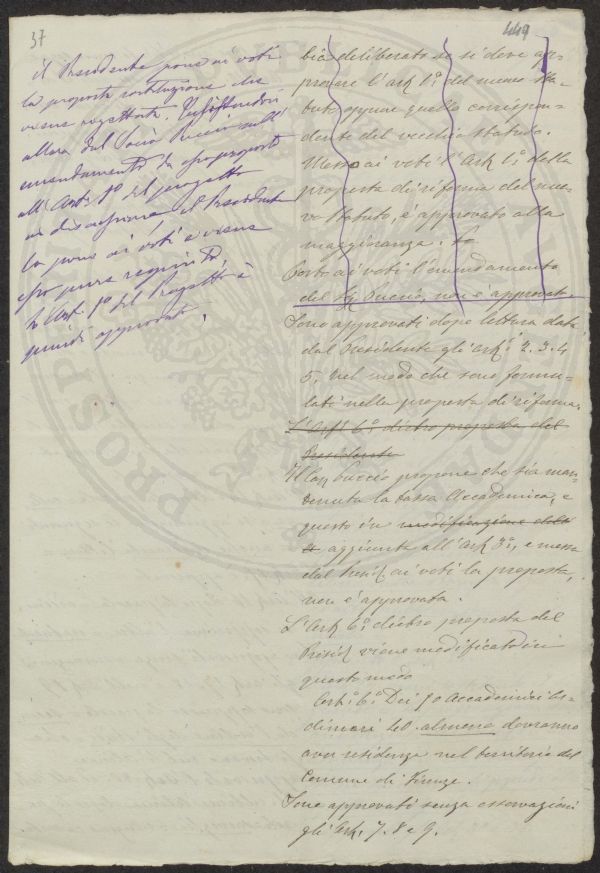 37
449
il Presidente pone ai voti
la proposta sostituzione che
viene rigettata. 
allora dal Socio Puccio sull'
emendamento da esso proposto
all'Art. 1º del progetto
in discussione, il Presidente
lo pone ai voti e viene
esso pure respinto,
L'Art. 1º del Progetto è
quindi approvato.
bia deliberato se si deve ap-
provare l'art. 1º del nuovo Sta-
tuto oppure quello corrispon-
dente del vecchio Statuto.
Messo ai voti l'Art. 1º della
proposta di riforma del nuo-
vo Statuto, è approvato alla
maggioranza.
Posto ai voti l'emendamento
del Sig. Puccio, non è approvato.
Sono approvati dopo lettura data
dal Presidente gli Art.i 2. 3. 4
5, nel modo che sono formu-
lati nella proposta di riforma.
L'Art. 6º dietro proposta del
Presidente
Il Cav. Puccio propone che sia man-
tenuta la tassa Accademica, e
questo in modificazione dell
a aggiunta all'Art. 5º, e messa
dal Presid. ai voti la proposta,
non è approvata.
L'Art. 6º dietro proposta del
Presid. viene modificato in
questo modo
Art. 6º Dei 70 Accademici Or-
dinari 40 almeno dovranno
aver residenza nel territorio del
Comune di Firenze.
Sono approvati senza osservazioni
gli Art. 7. 8 e 9.